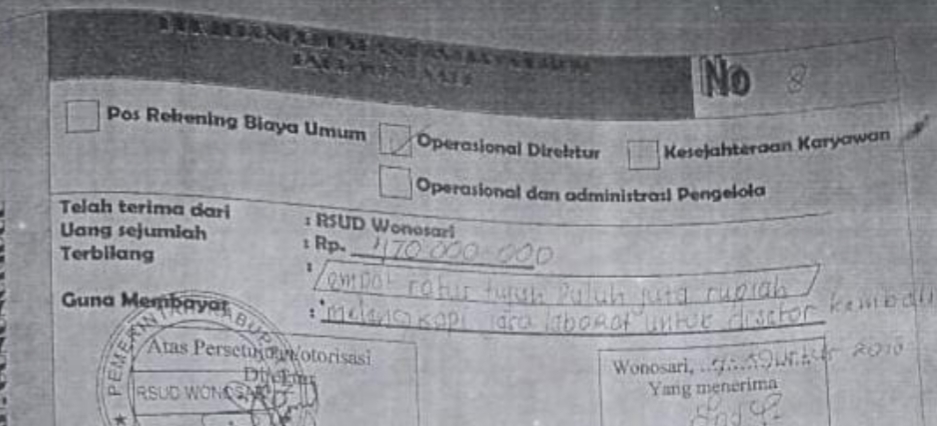 No 8
Pos Rekening Biaya Umum Operasional Direktur Kesejahteraan Karyawan
Operasional dan administrasi Pengelola
Telah terima dari : RSUD Wonosari
Uang sejumlah : Rp. 470.000.000
Terbilang : empat ratus tujuh puluh juta rupiah
Guna Membayar : melengkapi jasa laborat untuk disetor kembali
Atas Persetujuan/otorisasi
Direktur
RSUD WONOSARI
PEMERINTAH KABUP
Wonosari,
Yang menerima